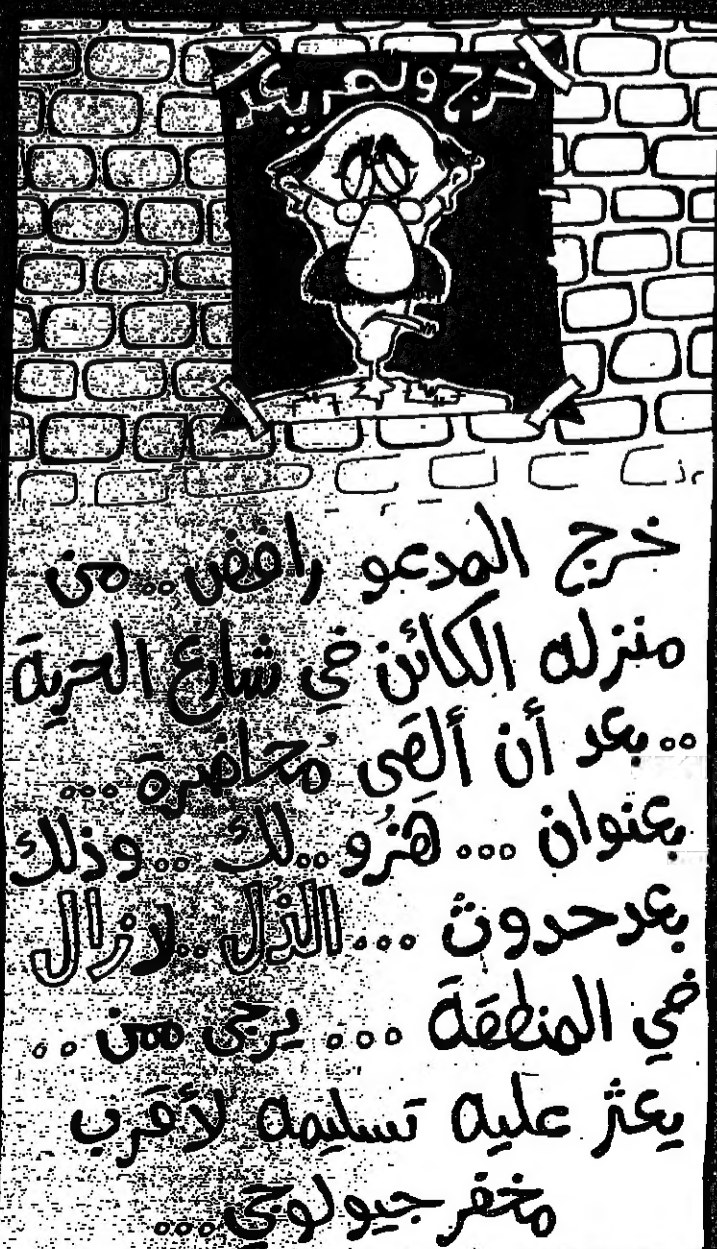 خرج ولم يعد
خرج المدعو رافض .. من
منزله الكائن في شارع الحرية
.. بعد أن ألقى مُحاضرة ...
بعنوان ... هُزو .. لك .. وذلك
بعد حدوث ... الذُل .. لازال
في المنطقة ... يرجى ممن ..
يعثر عليه تسليمه لأقرب
مخفر جيولوجي ...